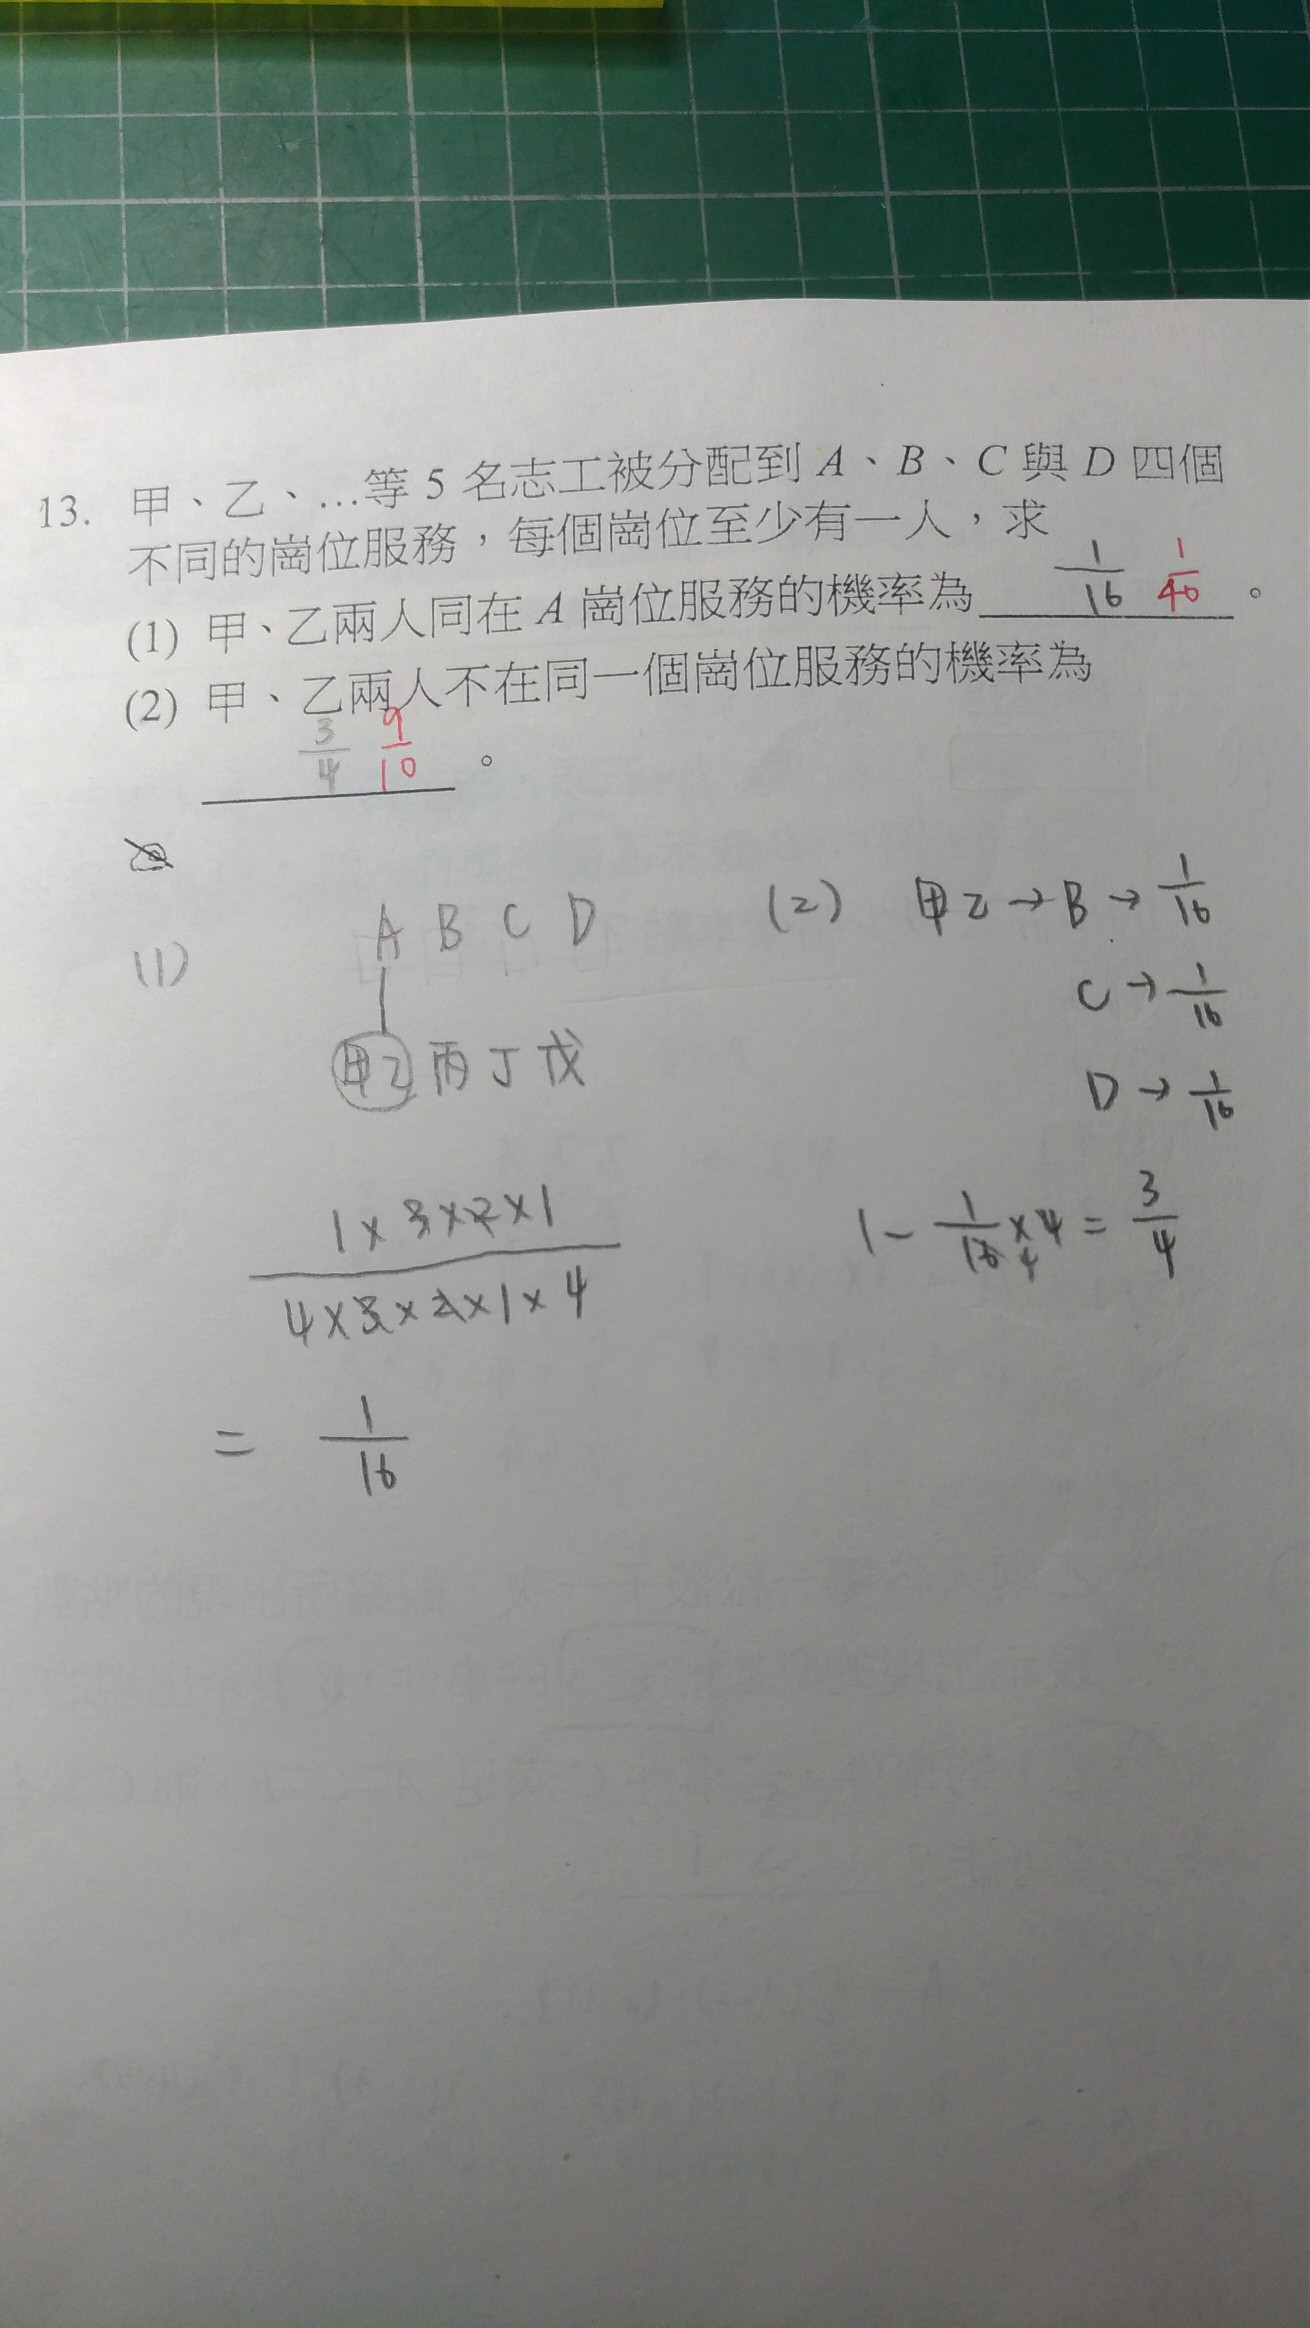 13. 甲、乙、…等 5 名志工被分配到 A、B、C 與 D 四個
不同的崗位服務，每個崗位至少有一人，求
(1) 甲、乙兩人同在 A 崗位服務的機率為 1/16 1/40 。
(2) 甲、乙兩人不在同一個崗位服務的機率為
3/4 9/10 。
(1)
A B C D
甲乙 丙 丁 戊
1×3×2×1
4×3×2×1×4
= 1/16
(2) 甲乙→B→1/16
C→1/16
D→1/16
1-1/16×4=3/4
4